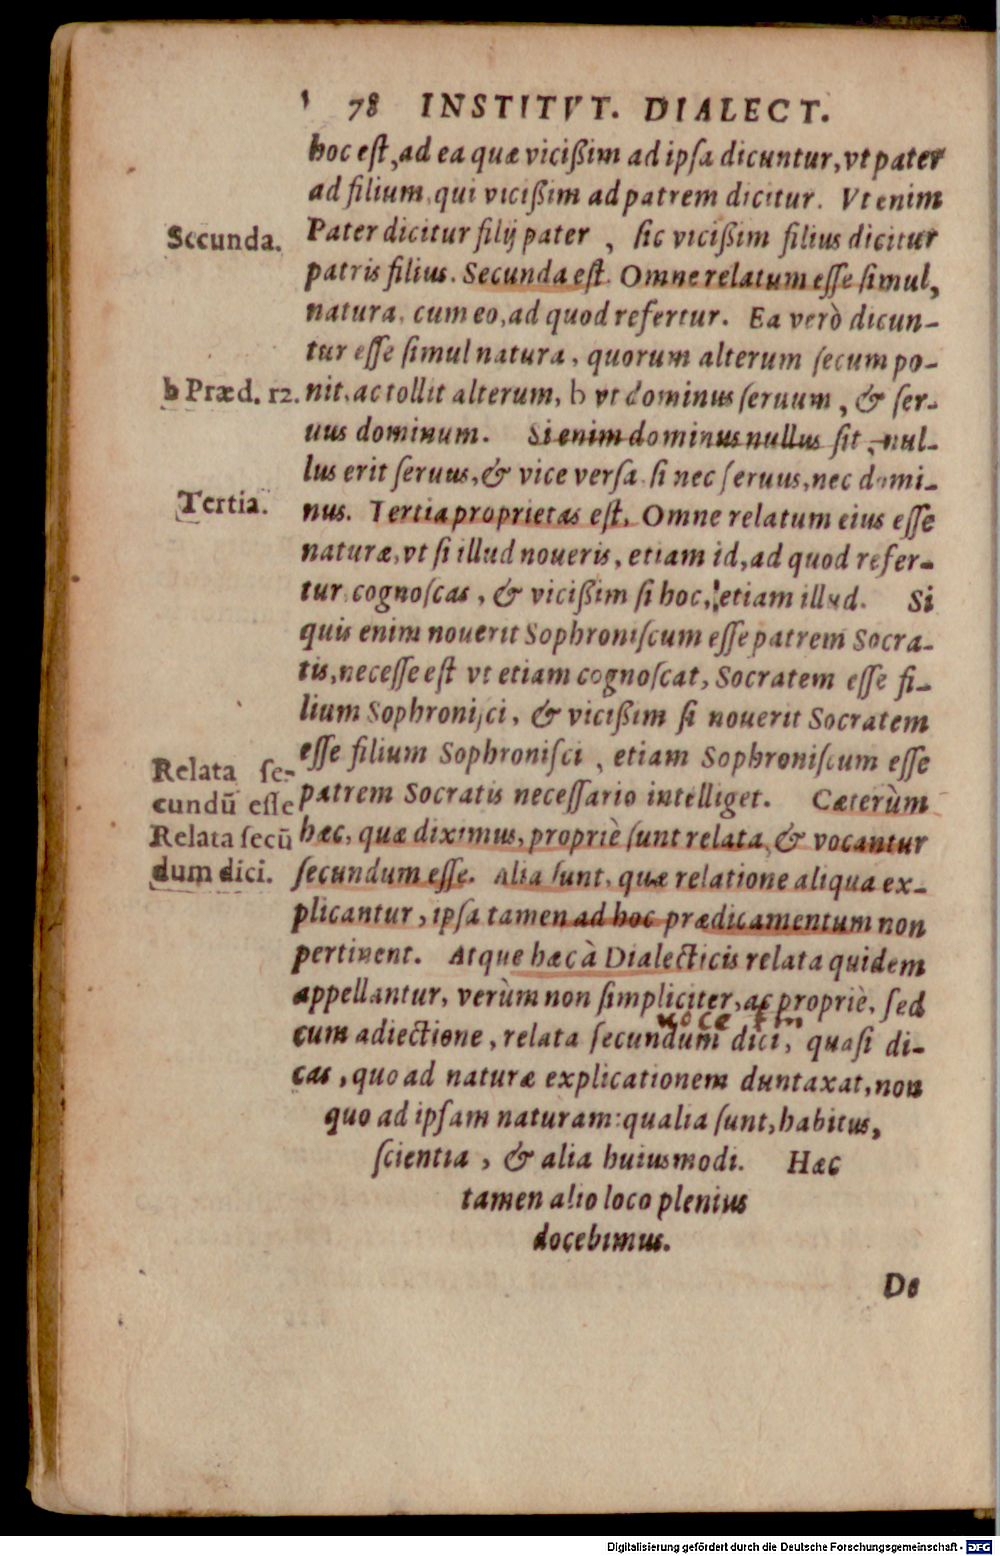 78 INSTITVT. DIALECT.
hoc est, ad ea quæ vicißim ad ipsa dicuntur, vt pater
ad filium, qui vicißim ad patrem dicitur. Vt enim
Secunda.
Pater dicitur filij pater, sic vicißim filius dicitur
patris filius. Secunda est. Omne relatum esse simul,
natura, cum eo, ad quod refertur. Ea verò dicun-
tur esse simul natura, quorum alterum secum po-
b Præd. 12.
nit, ac tollit alterum, b vt dominus seruum, & ser-
uus dominum. Si enim dominus nullus sit, nul-
lus erit seruus, & vice versa si nec seruus, nec domi-
Tertia.
nus. Tertia proprietas est. Omne relatum eius esse
naturæ, vt si illud noueris, etiam id, ad quod refer-
tur cognoscas, & vicißim si hoc, etiam illud. Si
quis enim nouerit Sophroniscum esse patrem Socra-
tis, necesse est vt etiam cognoscat, Socratem esse fi-
lium Sophronisci, & vicißim si nouerit Socratem
esse filium Sophronisci, etiam Sophroniscum esse
Relata se-
cundū esse
Relata secū
dum dici.
patrem Socratis necessario intelliget. Cæterùm
hæc, quæ diximus, propriè sunt relata, & vocantur
secundum esse. Alia sunt, quæ relatione aliqua ex-
plicantur, ipsa tamen ad hoc prædicamentum non
pertinent. Atque hæc à Dialecticis relata quidem
appellantur, verùm non simpliciter, ac propriè, sed
voce tm
cum adiectione, relata secundum dici, quasi di-
cas, quo ad naturæ explicationem duntaxat, non
quo ad ipsam naturam: qualia sunt, habitus,
scientia, & alia huiusmodi. Hæc
tamen alio loco plenius
docebimus.
De
Digitalisierung gefördert durch die Deutsche Forschungsgemeinschaft - DFG